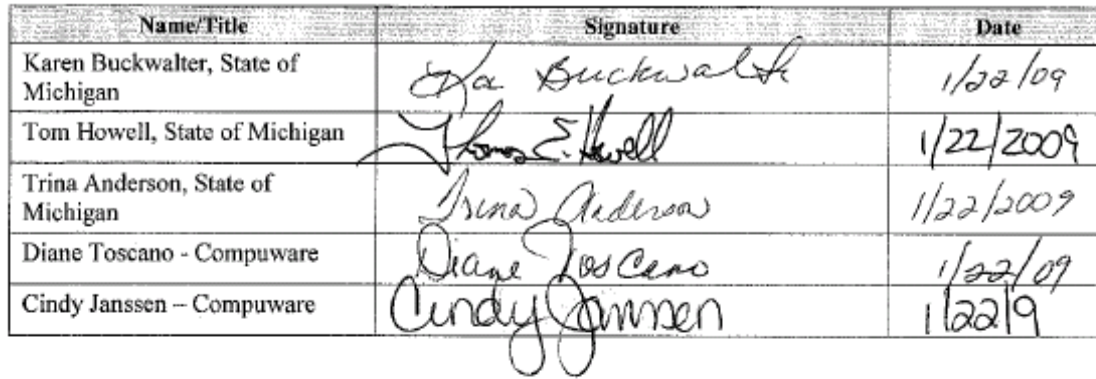 Name/Title Signature Date
Karen Buckwalter, State of Michigan Ka Buckwalter 1/22/09
Tom Howell, State of Michigan Thomas E. Howell 1/22/2009
Trina Anderson, State of Michigan Trina Anderson 1/22/2009
Diane Toscano - Compuware Diane Toscano 1/22/09
Cindy Janssen – Compuware Cindy Janssen 1/22/9